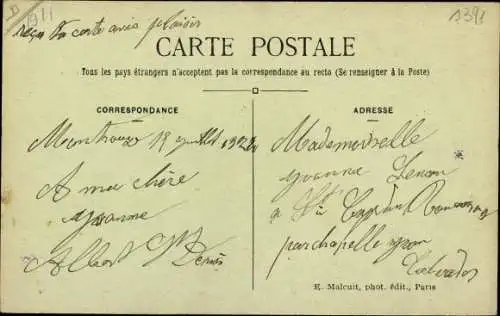 D
1911
1391
reçu ta carte avec plaisir
CARTE POSTALE
Tous les pays étrangers n'acceptent pas la correspondance au recto (Se renseigner à la Poste)
CORRESPONDANCE
Montrouge 19 juillet 1922
A ma chère
Yvonne
Albert Denis
ADRESSE
Mademoiselle
Yvonne
a
par chapelle yvon
Calvados
E. Malcuit, phot. édit., Paris